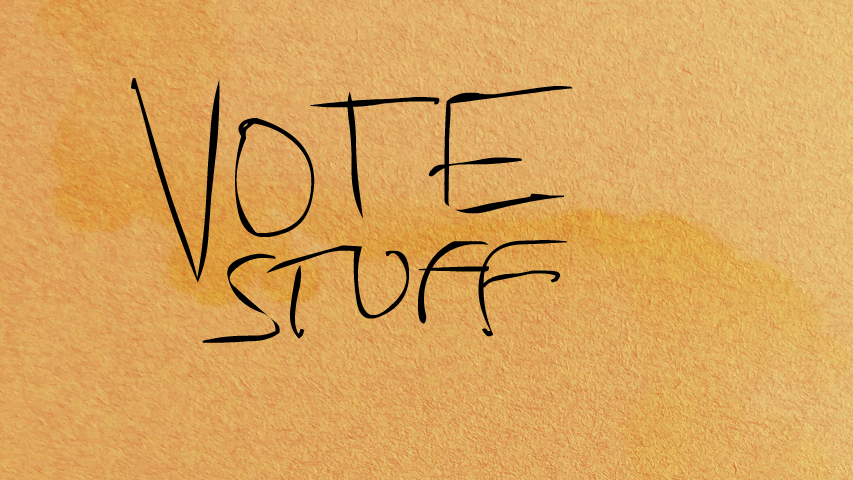 VOTE
STUFF